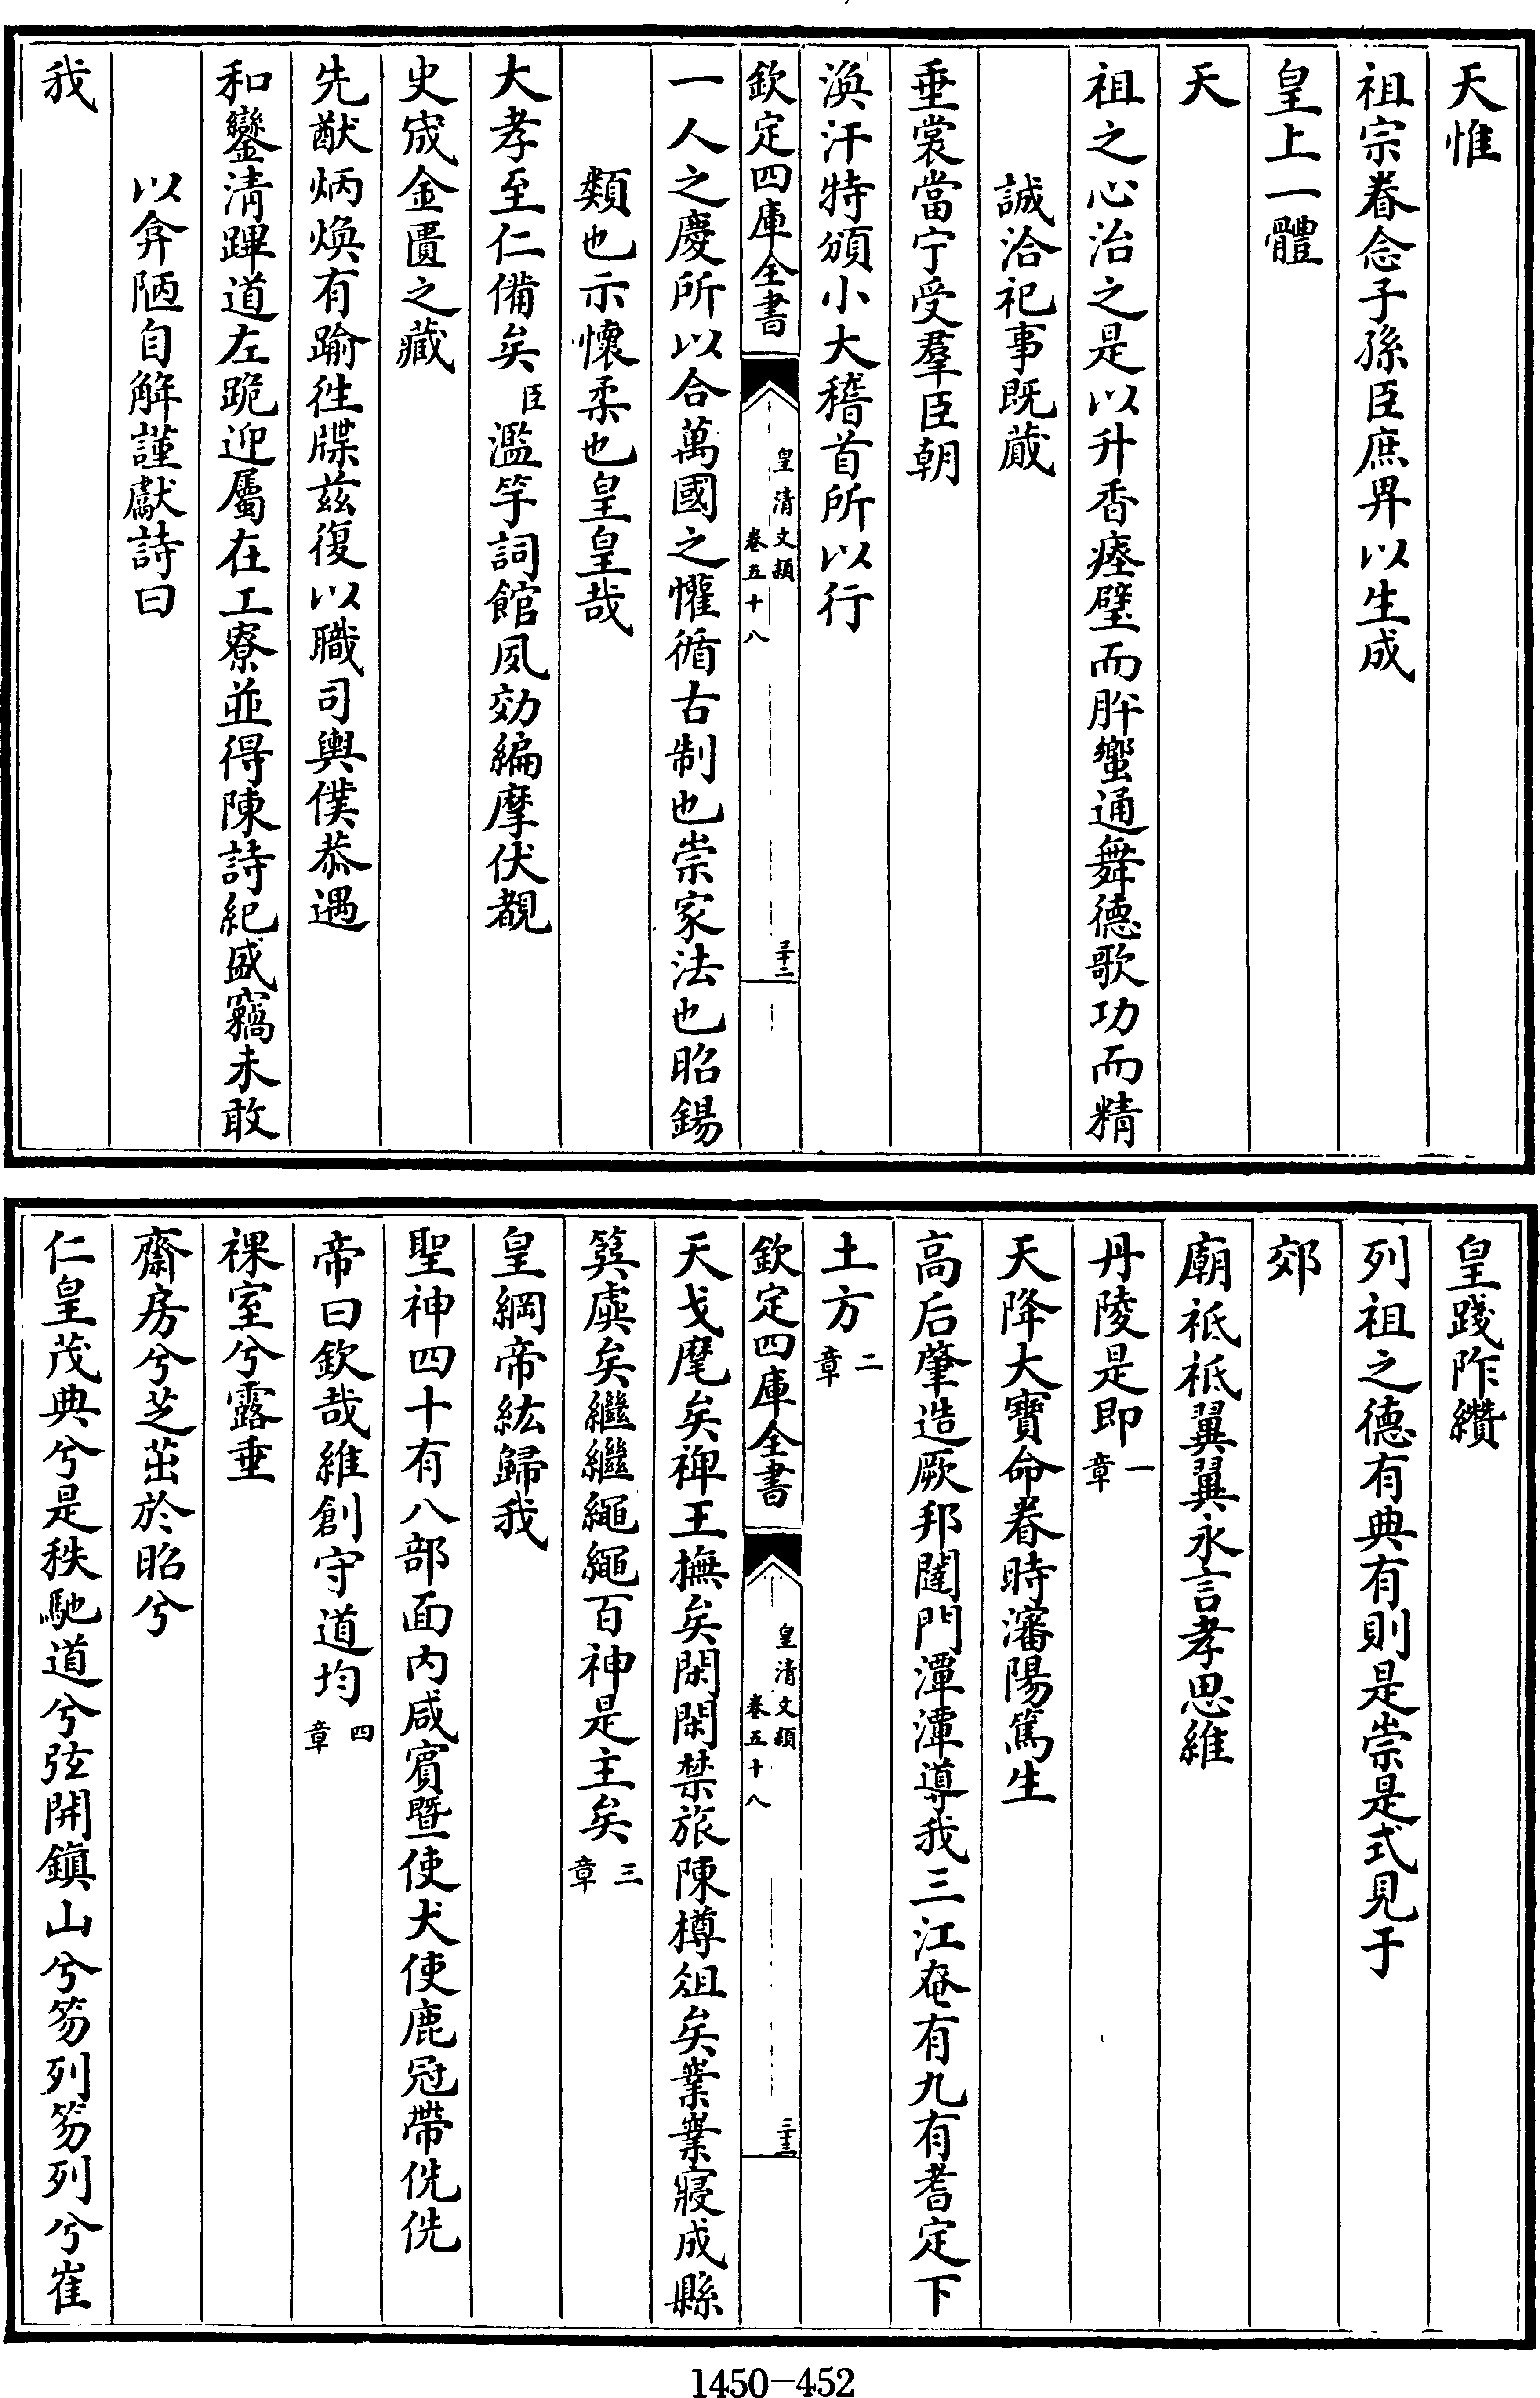 天惟
祖宗眷念子孫臣庶畀以生成
皇上一體
天
祖之心治之是以升香瘞璧而肸蠁通舞德歌功而精
誠洽祀事既蕆
垂裳當宁受羣臣朝
渙汗特頒小大稽首所以行
欽定四庫全書
皇清文穎
卷五十八
三十二
一人之慶所以合萬國之懽循古制也崇家法也昭錫
類也示懷柔也皇皇哉
大孝至仁備矣臣濫竽詞館夙效編摩伏覩
史宬金匱之藏
先猷炳煥有踰徃牒兹復以職司輿僕恭遇
和鑾清蹕道左跪迎屬在工寮並得陳詩紀盛竊未敢
以弇陋自解謹獻詩曰
我
皇踐阼纘
列祖之德有典有則是崇是式見于
郊
廟祗祗翼翼永言孝思維
丹陵是即一章
天降大寶命眷時瀋陽篤生
高后肇造厥邦闥門潭潭導我三江奄有九有耆定下
土方二章
欽定四庫全書
皇清文穎
卷五十八
三十三
天戈麾矣裨王撫矣閑閑禁旅陳樽俎矣業業寢成縣
簨虡矣繼繼繩繩百神是主矣三章
皇綱帝紘歸我
聖神四十有八部面内咸賓暨使犬使鹿冠帶侁侁
帝曰欽哉維創守道均四章
祼室兮露垂
齋房兮芝茁於昭兮
仁皇茂典兮是秩馳道兮弦開鎮山兮笏列笏列兮崔
1450-452